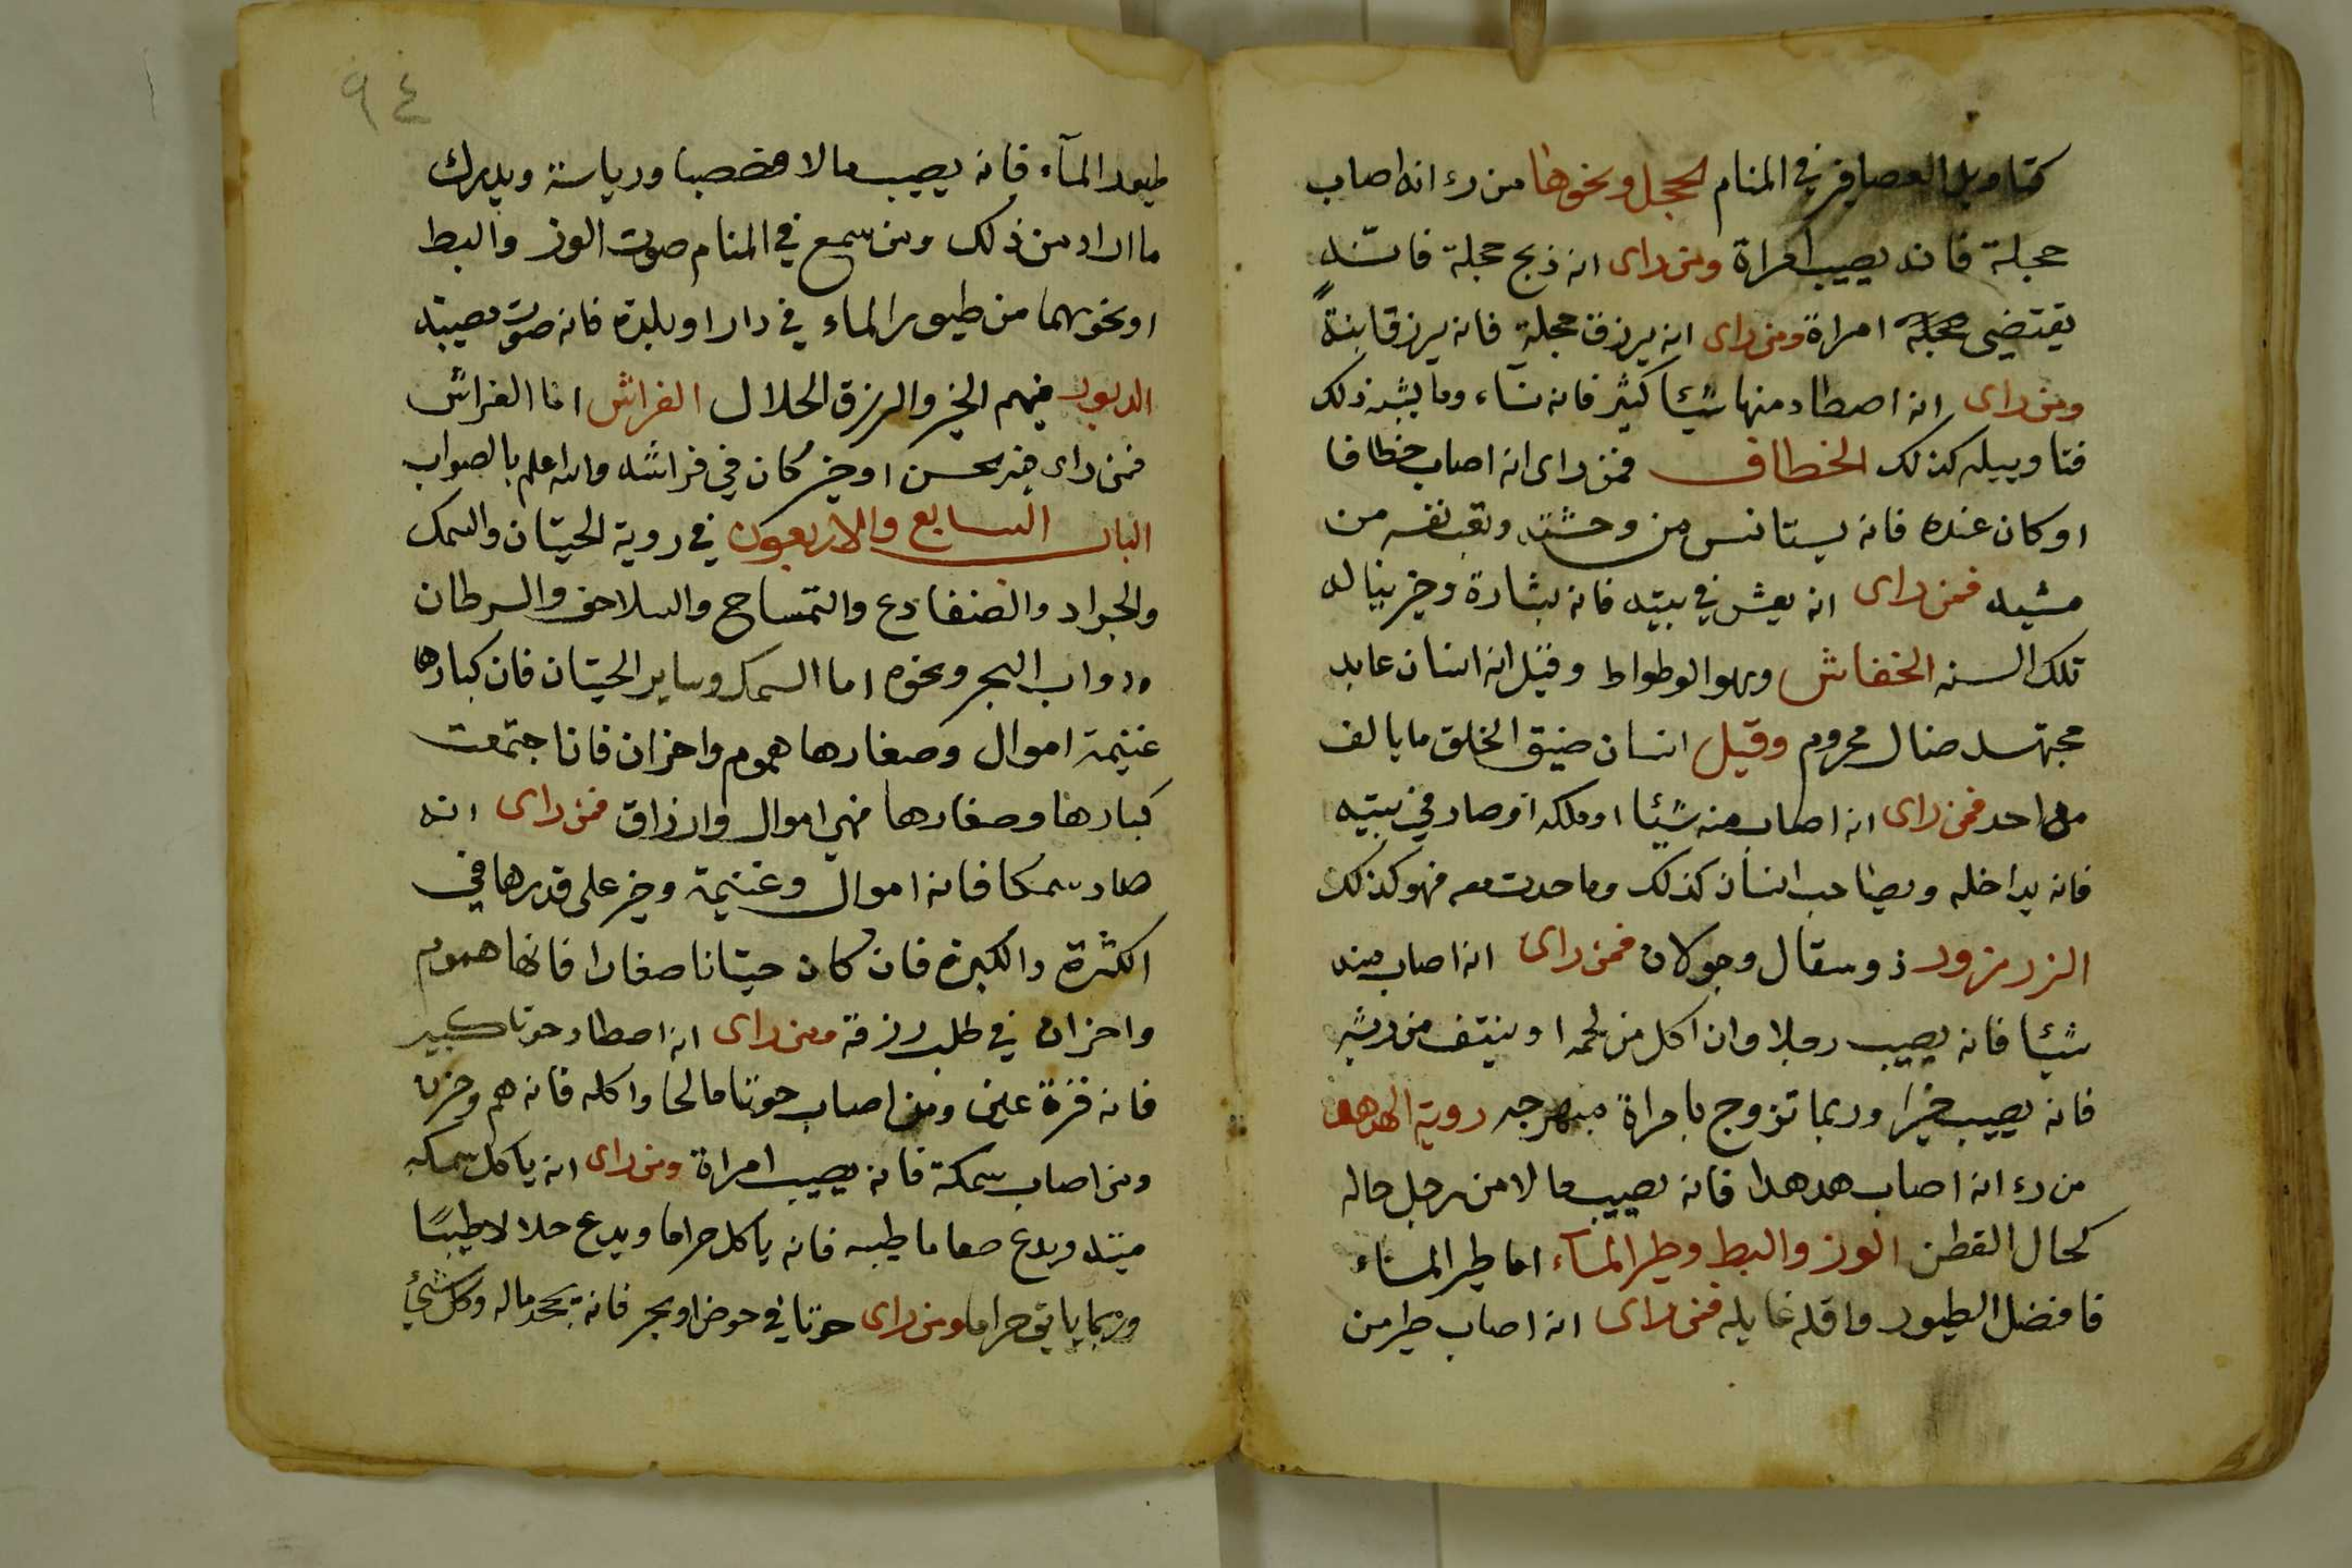 كتاويل العصافير في المنام الحجل ونحوها من رء انه اصاب
حجلة فانه يصيب امراة ومن راى انه ذبح حجلة فانه
يقتضي امراة ومن راى انه يرزق حجلة فانه يرزق ابنةً
ومن راى انه اصطاد منها شيئا كثير فانه نسآء وما يشبه ذلك
فتاويله كذلك الخطاف فمن راى انه اصاب خطافا
اوكان عنده فانه يستانس من وحشته من
فمن راى انه يعشش في بيته فانه بشارة وخير يناله
تلك السنه الخفاش وهو الوطواط وقيل انه انسان عابد
مجتهد محروم وقيل انسان ضيق الخلق ما يالف
احد فمن راى انه اصاب منه شيئا او ملكه او صار في بيته
فانه يداخله ويصاحب انسان كذلك وما حدث معه فهو كذلك
الزرزور ذو وجولان فمن راى انه اصاب منه
شيئا فانه يصيب رجلا وان اكل من لحمه او ينتف من ريشه
فانه يصيب خيرا وربما تزوج بامراة روية الهدهد
من رء انه اصاب هدهدا فانه يصيب مالا من رجل حاله
كحال القطن الوز والبط وطير المآء اما طير الماء
فافضل الطيور واقله غايله فمن راى انه اصاب طير من
٩٤
طيور المآء فانه يصيب مالا ورياسة ويدرك
ما اراد من ذلك ومن سمع في المنام صوت الوز والبط
او نحوهما من طيور الماء في دار او بلدة فانه صوت مصيبة
فهم الخير والرزق الحلال الفراش اما الفراش
فمن راى فيه حسن او خير كان في فراشه والله اعلم بالصواب
الباب السابع والاربعون في روية الحيتان والسمك
والجراد والضفادع والتمساح والسلاحف والسرطان
ودواب البحر ونحوه اما السمك وساير الحيتان فان كبارها
غنيمة اموال وصغارها هموم واحزان فاذا اجتمعت
كبارها وصغارها فهي اموال وارزاق فمن راى انه
صاد سمكا فانه اموال وغنيمة وخير على قدرها في
الكثرة والكبرة فان كان حيتانا صغارا فانها هموم
واحزان في طلب رزقة ومن راى انه اصطاد حوتا كبير
فانه قرة عين ومن اصاب حوتا مالحا واكله فانه هم وحزن
ومن اصاب سمكة فانه يصيب امراة ومن راى انه ياكل سمكه
ميته ويدع طعاما طيبه فانه ياكل حراما ويدع حلالا طيبًا
وربما ياتي حراما ومن راى حوتا في حوض او بحر فانه ماله وكل شئ